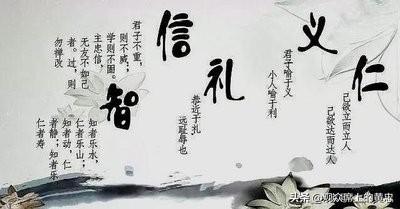 仁
己欲立而立人
己欲达而达人
义
君子喻于义
小人喻于利
礼
恭近于扎
远耻辱也
信
君子不重，
则不威；
学则不固。
主忠信，
无友不如己
者。过，则
勿禅改
智
知者乐水，
仁者乐山；
知者动，仁
者静；知者乐
仁者寿
头条 @观众席上的黄忠